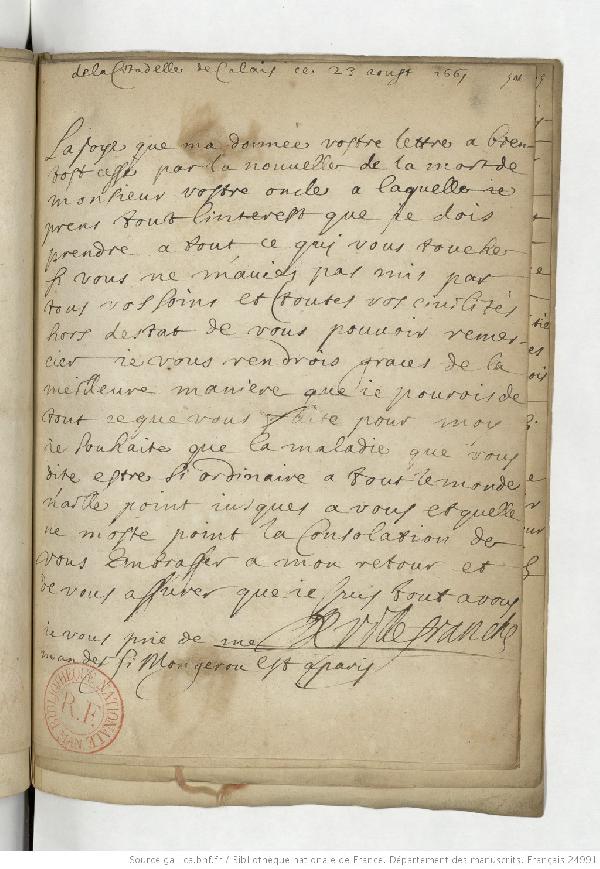 de la Citadelle de Calais ce 23 aoust 1661
La joye que ma donnée vostre lettre a bien
tost cessé par la nouvelle de la mort de
monsieur vostre oncle a laquelle ie
prens tout linterest que je dois
prendre a tout ce qui vous touche
si vous ne mauiés pas mis par
tous vos soins et toutes vos ciuilités
hors destat de vous pouvoir remer-
cier ie vous rendrois graces de la
meilleure maniere que ie pourois de
tout ce que vous faite pour moy
ie souhaite que la maladie que vous
dite estre si ordinaire a tout le monde
naille point iusques a vous et quelle
ne moste point la Consolation de
vous Embrasser a mon retour et
de vous assurer que ie suis tout a vous
ie vous prie de me
mander si Mongerou est a paris
De Villefranche
BIBLIOTHEQUE NATIONALE
R.F.
MAN
Source gallica.bnf.fr / Bibliothèque nationale de France. Département des manuscrits. Français 24991